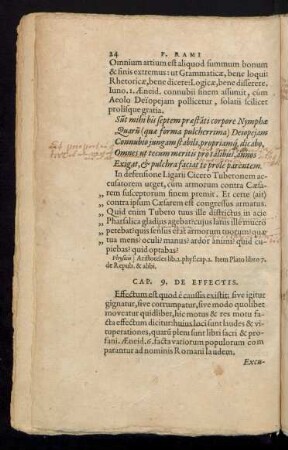 24 P. RAMI
Omnium artium est aliquod summum bonum
& finis extremus: ut Grammaticæ, bene loqui:
Rhetoricæ, bene dicere: Logicæ, bene disserere.
Iuno. 1. Æneid. connubii finem assumit, cùm
Aeolo Deïopejam pollicetur, solatii scilicet
prolisque gratia.
Sũt mihi bis septem præstãti corpore Nymphæ
Quarũ (quæ forma pulcherrima) Deiopejam
Connubio jungam stabili, propriamq́; dicabo,
Omnes ut tecum meritis pro talibus annos
Exigat, & pulchra faciat te prole parentem.
In defensione Ligarii Cicero Tuberonem ac-
cusatorem urget, cùm armorum contra Cæsa-
rem susceptorum finem premit. Et certe (ait)
contra ipsum Cæsarem est congressus armatus.
Quid enim Tubero tuus ille districtus in acie
Pharsalica gladius agebat? cujus latus ille mucro
petebat? quis sensus erat armorum tuorum? quæ
tua mens? oculi? manus? ardor animi? quid cu-
piebas? quid optabas?
Physica) Aristoteles lib. 2. phys. cap. 2. Item Plato libro 7.
de Repub. & alibi.
CAP. 9. DE EFFECTIS.
Effectum est quod è caussis existit: sive igitur
gignatur, sive corrumpatur, sive modo quolibet
moveatur quidlibet, hic motus & res motu fa-
cta effectum dicitur: hujus loci sunt laudes & vi-
tuperationes, quarũ pleni sunt libri sacri & pro-
fani. Æneid. 6. facta variorum populorum com
parantur ad nominis Romani laudem.
Excu-